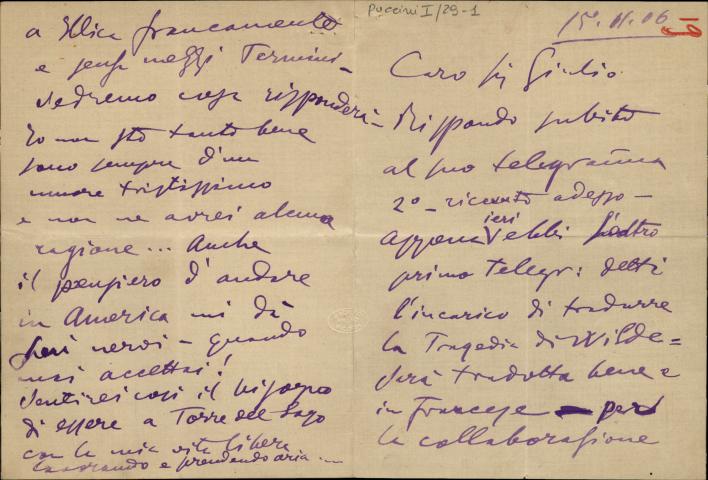 Puccini I/29-1
15.11.06
Caro Sig Giulio
Rispondo subito
al suo telegramma
2º - ricevuto adesso -
appena ieri ebbi l'altro
primo telegr: detti
l'incarico di tradurre
la Tragedia di Wilde =
Sarà tradotta bene e
in francese - per
la collaborazione
a Illica francamente
e senza mezzi Termini -
Vedremo cosa risponderà -
Io non sto tanto bene
sono sempre d'un
umore tristissimo
e non ne avrei alcuna
ragione... Anche
il pensiero d'andare
in America mi dà
sui nervi - quando
mai accettai!
Sentirei così il bisogno
di essere a Torre del Lago
con la mia vita libera
lavorando e prendendo aria ....